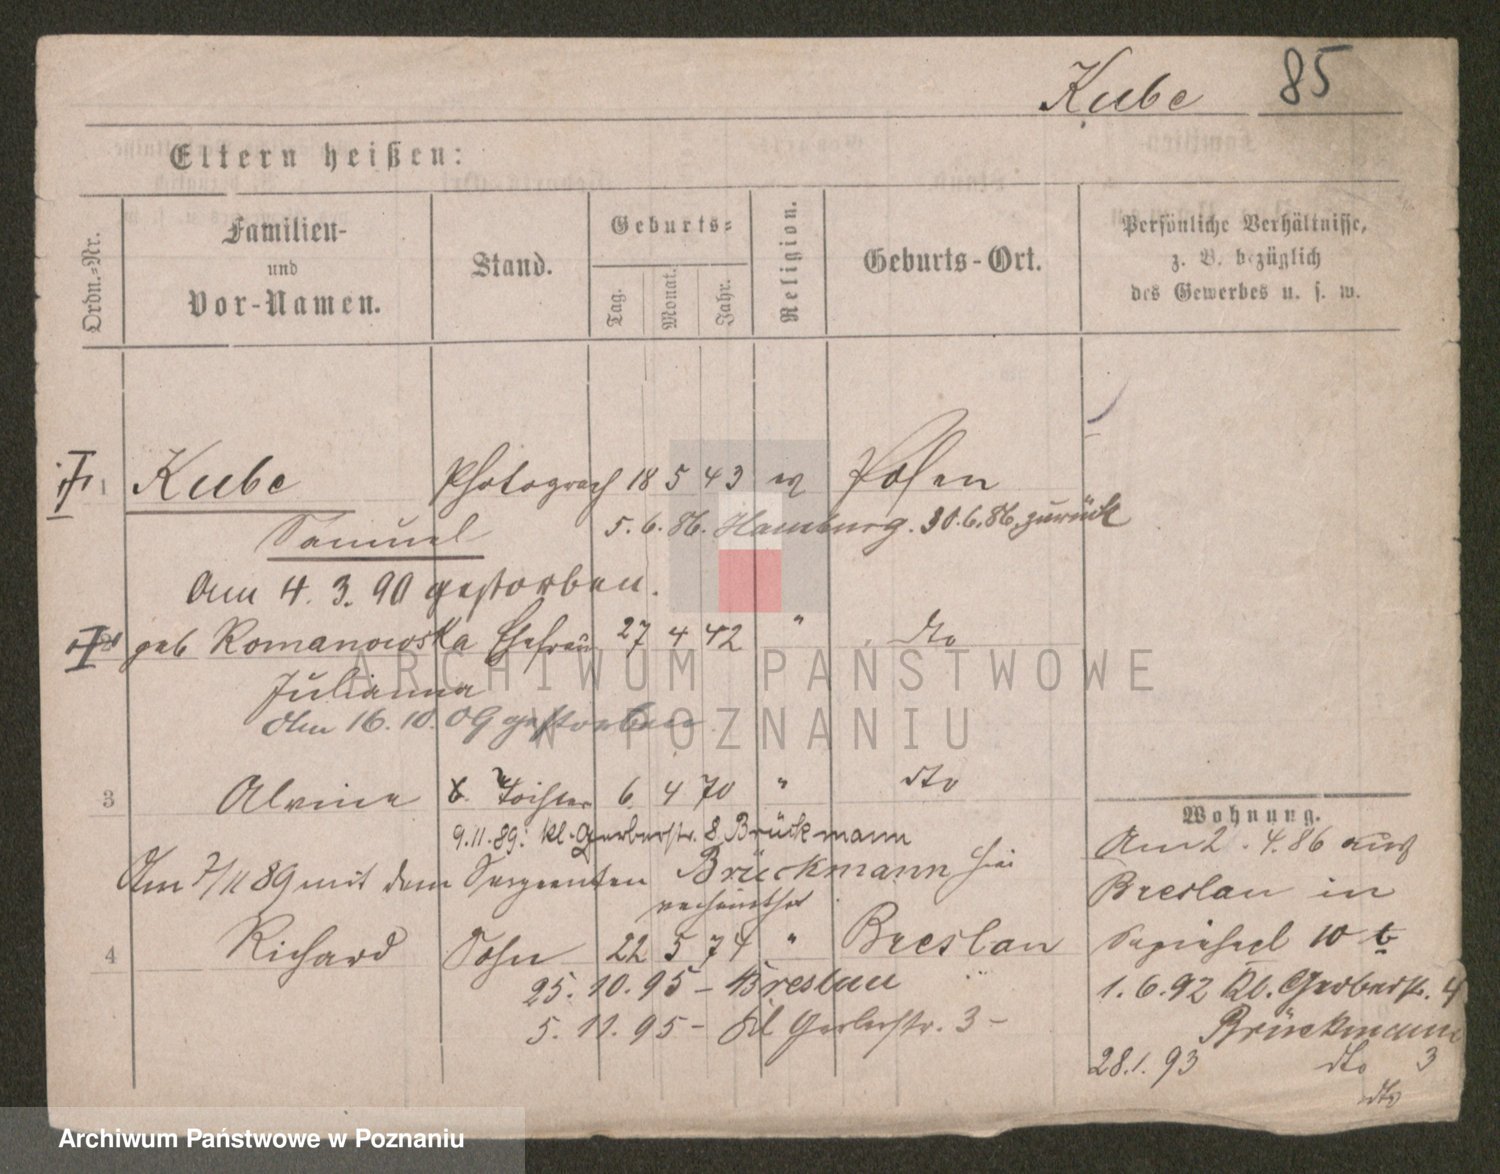 Kube 85
Eltern heißen:
Ordn.-Nr.
Familien-
und
Vor-Namen.
Stand.
Geburts-
Tag.
Monat.
Jahr.
Religion.
Geburts-Ort.
Persönliche Verhältnisse,
z. B. bezüglich
des Gewerbes u. s. w.
1 Kube Photograph 18 5 43 Posen
Samuel 5. 6. 86. Hamburg. 30. 6. 86. zurück
Am 4. 3. 90 gestorben.
geb Romanowska Ehefrau 27 4 42 " dto
Julianna
Am 16. 10. 09 gestorben
3 Alvine Tochter 6 4 70 " dto
9. 11. 89. Kl. Gerberstr. 8 Brückmann
Am 7/11 89 mit dem Sergeanten Brückmann hier
4 Richard Sohn 22 5 74 " Breslau
25. 10. 95 - Breslau
5. 11. 95 - Kl Gerberstr. 3 -
Wohnung.
Am 2. 4. 86 aus
Breslau in
10 b
1. 6. 92 Kl. Gerberstr. 4
Brückmann
28. 1. 93 dto 3
dto
ARCHIWUM PAŃSTWOWE
W POZNANIU
Archiwum Państwowe w Poznaniu